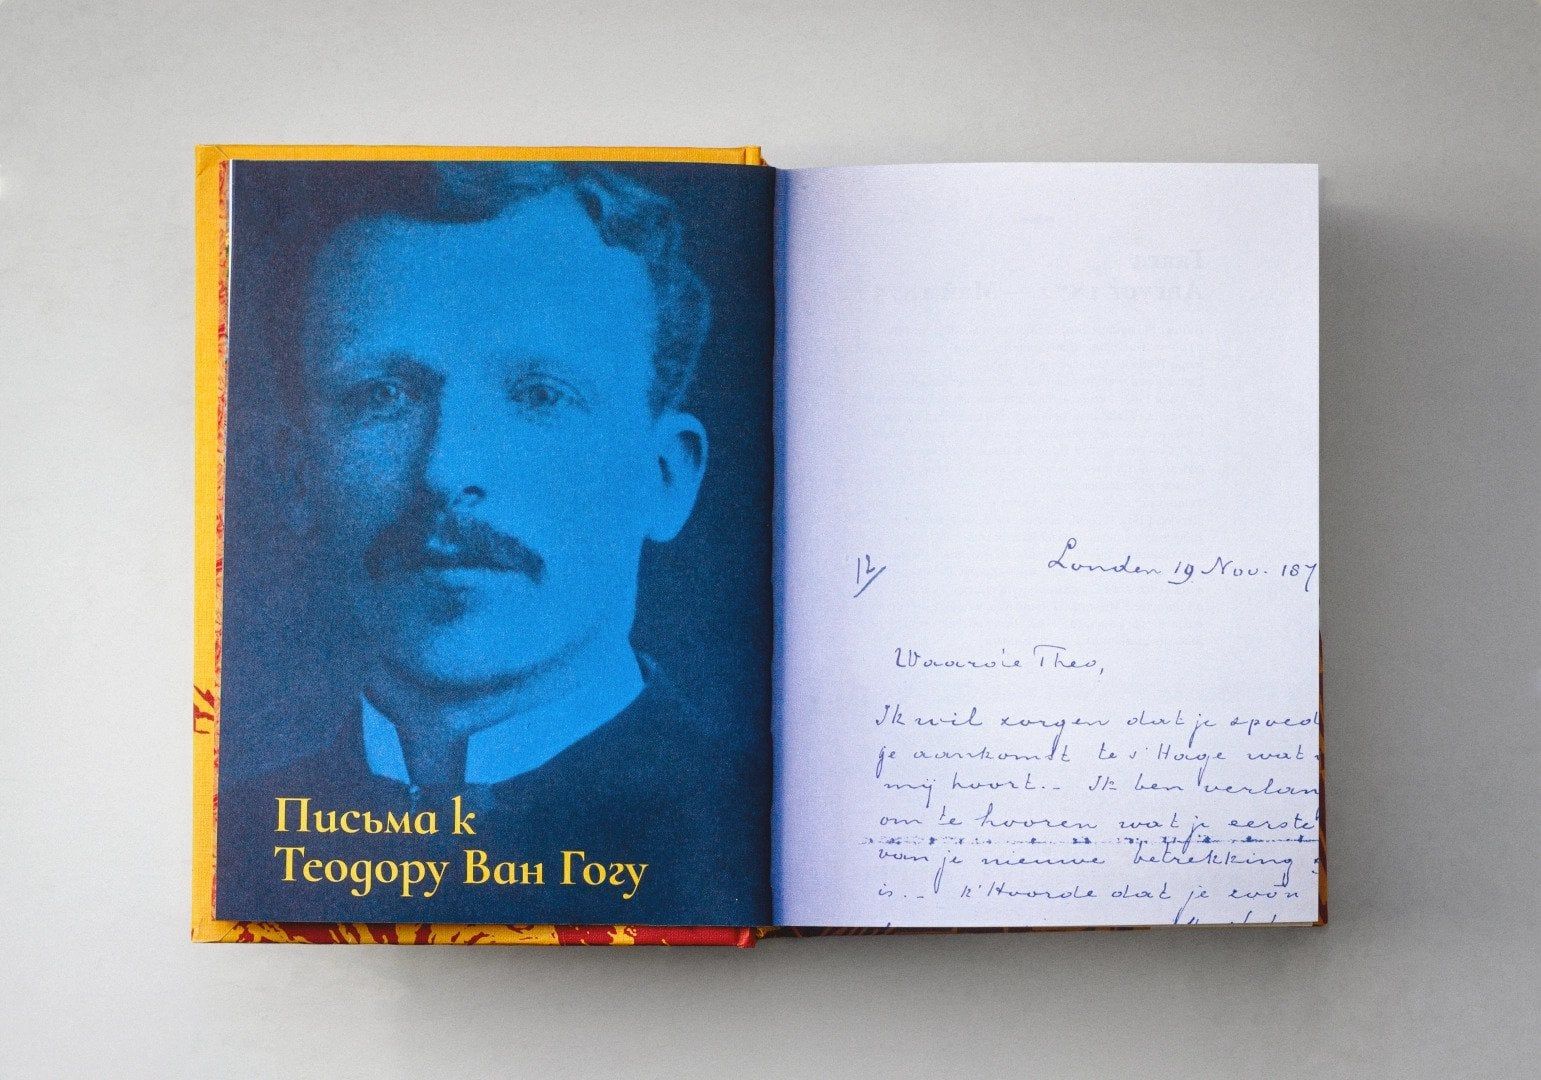 Письма к
Теодору Ван Гогу
12/
Londen 19 Nov. 187
Waarde Theo,
Ik wil zorgen dat je spoed
je aankomst te s'Hage wat
mij hoort._ Ik ben verlan
om te hooren wat je eerste
van je nieuwe betrekking
is._ k'Hoorde dat je zoo'n